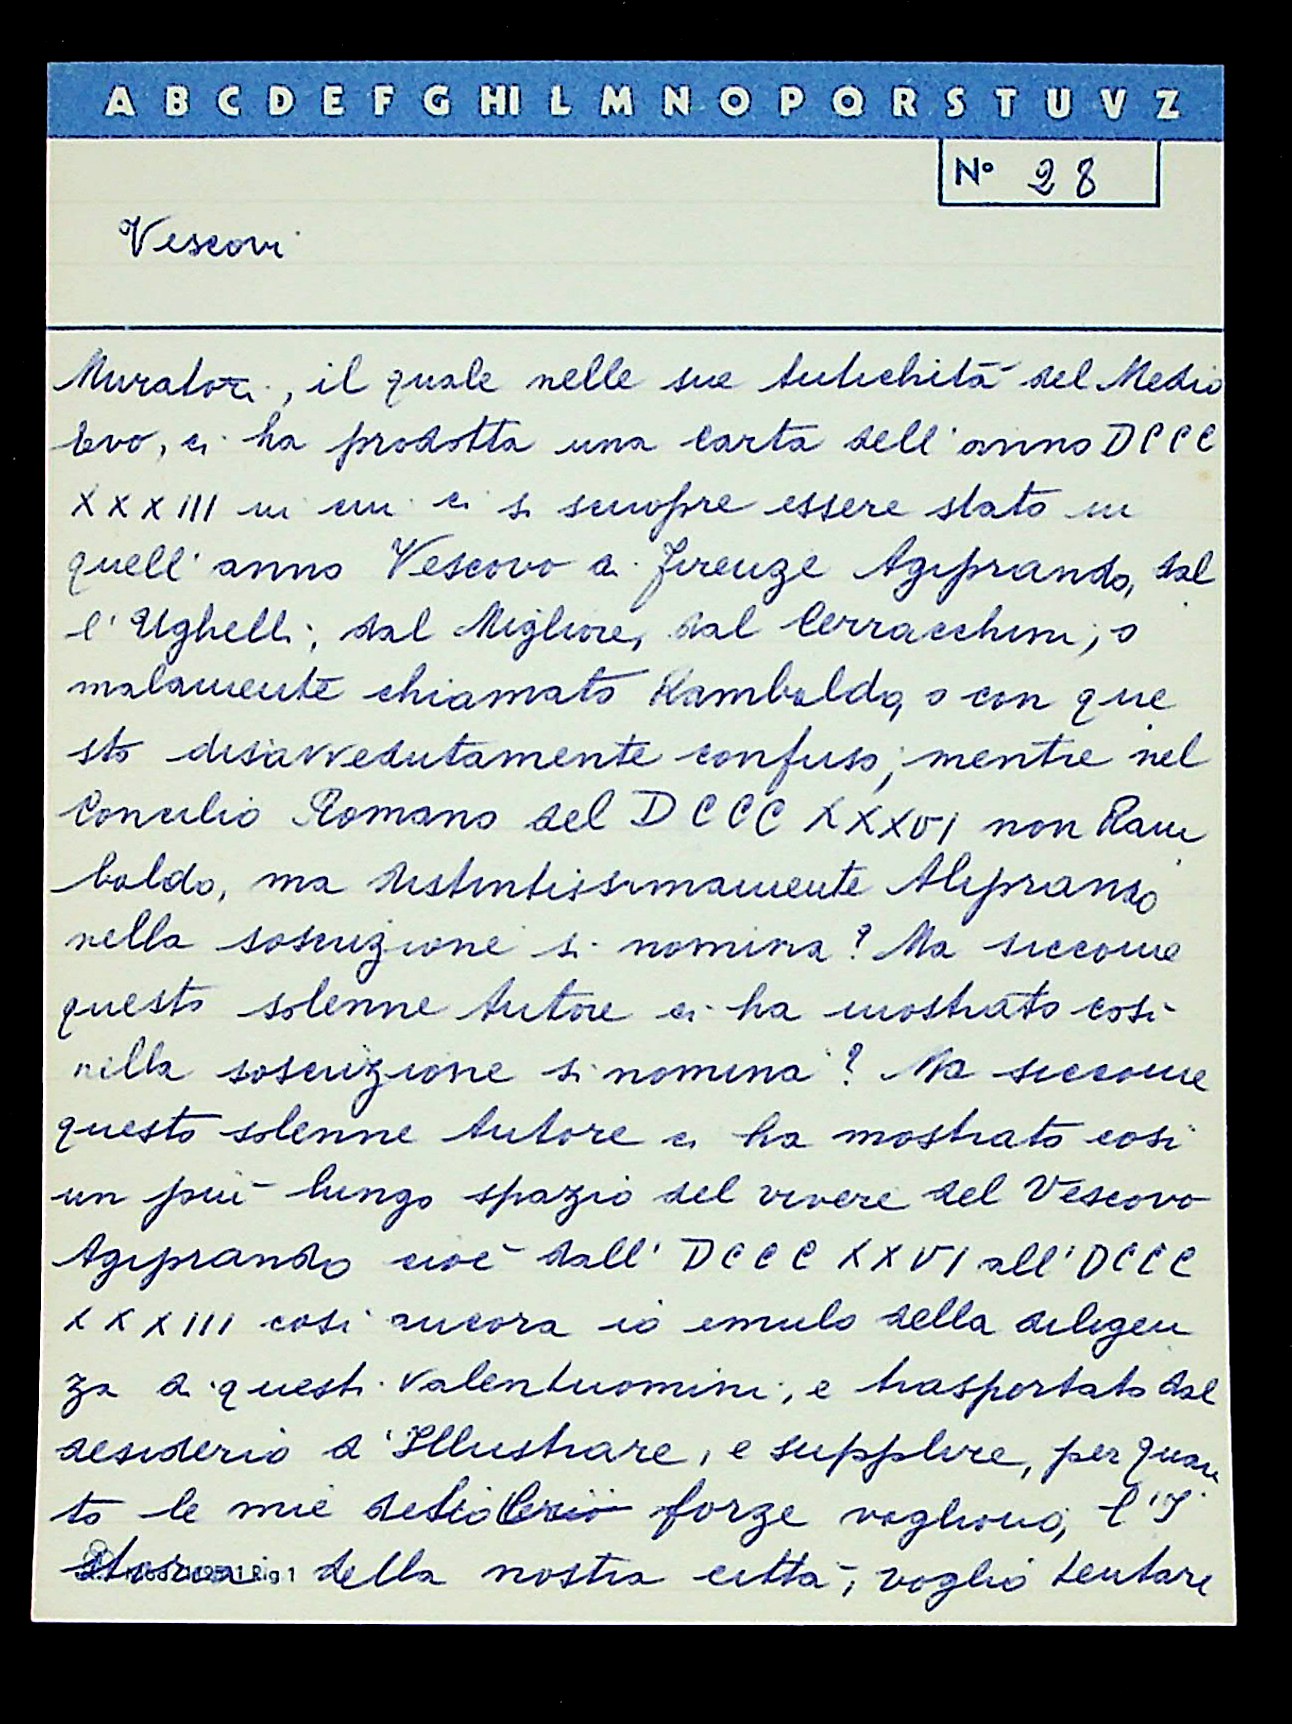 A B C D E F G HI L M N O P Q R S T U V Z
N° 28
Vescovi
Muratori, il quale nelle sue Antichità del Medio
Evo, ci ha prodotta una Carta dell'anno DCCC
XXXIII in cui ci si scuopre essere stato in
quell'anno Vescovo di Firenze Agiprando, dal
l'Ughelli, dal Migliore, dal Cerracchini, o
malamente chiamato Rambaldo, o con que
sto disavvedutamente confuso, mentre nel
Concilio Romano del DCCC XXXVI non Ram
baldo, ma distintissimamente Aliprando
nella soscrizione si nomina? Ma siccome
questo solenne Autore ci ha mostrato così
nella soscrizione si nomina? Ma siccome
questo solenne Autore ci ha mostrato così
un più lungo spazio del vivere del Vescovo
Agiprando cioè dall'DCCC XXVI all'DCCC
XXXIII così ancora io emulo della diligen
za di questi valentuomini, e trasportato dal
desiderio d'Illustrare, e supplire, per quan
to le mie forze vogliono, l'I
storia della nostra città, voglio tentare